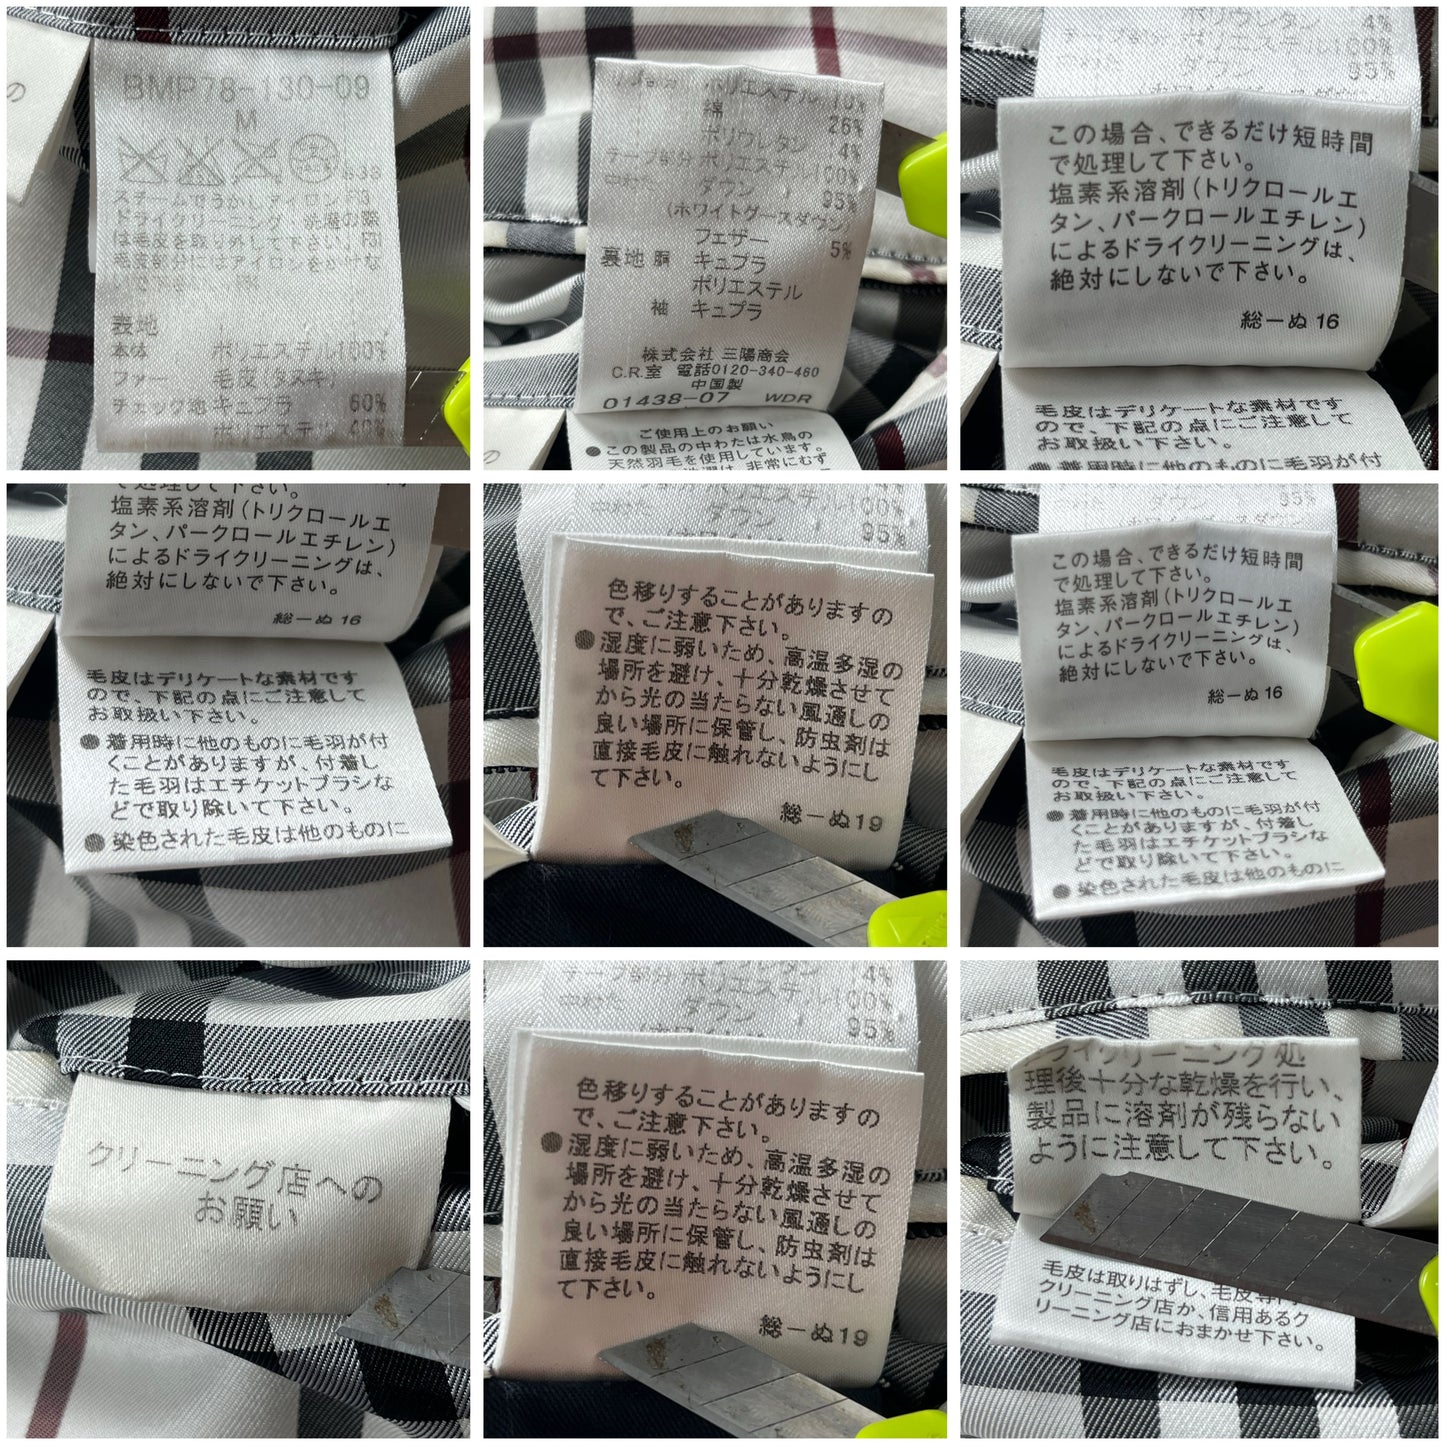 の
BMP78-130-09
M
ドライクリーニング
は毛皮を取り外して下さい。
毛皮部分にはアイロンをかけな
表地
本体 ポリエステル100%
ファー 毛皮(タヌキ)
チェック地 キュプラ 60%
ポリエステル 40%
ポリエステル 10%
綿 26%
ポリウレタン 4%
テープ部分 ポリエステル100%
中わた ダウン 95%
(ホワイトグースダウン)
フェザー 5%
裏地 胴 キュプラ
ポリエステル
袖 キュプラ
株式会社 三陽商会
C.R.室 電話0120-340-460
中国製
01438-07 WDR
ご使用上のお願い
●この製品の中わたは水鳥の
天然羽毛を使用しています。
ポリウレタン 4%
ポリエステル 100%
ダウン 95%
この場合、できるだけ短時間
で処理して下さい。
塩素系溶剤(トリクロールエ
タン、パークロールエチレン)
によるドライクリーニングは、
絶対にしないで下さい。
総一ぬ 16
毛皮はデリケートな素材です
ので、下記の点にご注意して
お取扱い下さい。
●着用時に他のものに毛羽が付
で処理して下さい。
塩素系溶剤(トリクロールエ
タン、パークロールエチレン)
によるドライクリーニングは、
絶対にしないで下さい。
総一ぬ 16
毛皮はデリケートな素材です
ので、下記の点にご注意して
お取扱い下さい。
●着用時に他のものに毛羽が付
くことがありますが、付着し
た毛羽はエチケットブラシな
どで取り除いて下さい。
●染色された毛皮は他のものに
ダウン 95%
色移りすることがありますの
で、ご注意下さい。
●湿度に弱いため、高温多湿の
場所を避け、十分乾燥させて
から光の当たらない風通しの
良い場所に保管し、防虫剤は
直接毛皮に触れないようにし
て下さい。
総一ぬ19
ダウン 95%
この場合、できるだけ短時間
で処理して下さい。
塩素系溶剤(トリクロールエ
タン、パークロールエチレン)
によるドライクリーニングは、
絶対にしないで下さい。
総一ぬ 16
毛皮はデリケートな素材です
ので、下記の点にご注意して
お取扱い下さい。
●着用時に他のものに毛羽が付
くことがありますが、付着し
た毛羽はエチケットブラシな
どで取り除いて下さい。
●染色された毛皮は他のものに
クリーニング店への
お願い
4%
テープ部分 ポリエステル100%
中わた ダウン 95%
色移りすることがありますの
で、ご注意下さい。
●湿度に弱いため、高温多湿の
場所を避け、十分乾燥させて
から光の当たらない風通しの
良い場所に保管し、防虫剤は
直接毛皮に触れないようにし
て下さい。
総一ぬ19
ドライクリーニング処
理後十分な乾燥を行い、
製品に溶剤が残らない
ように注意して下さい。
毛皮は取りはずし、毛皮専門
クリーニング店か、信用あるク
リーニング店におまかせ下さい。